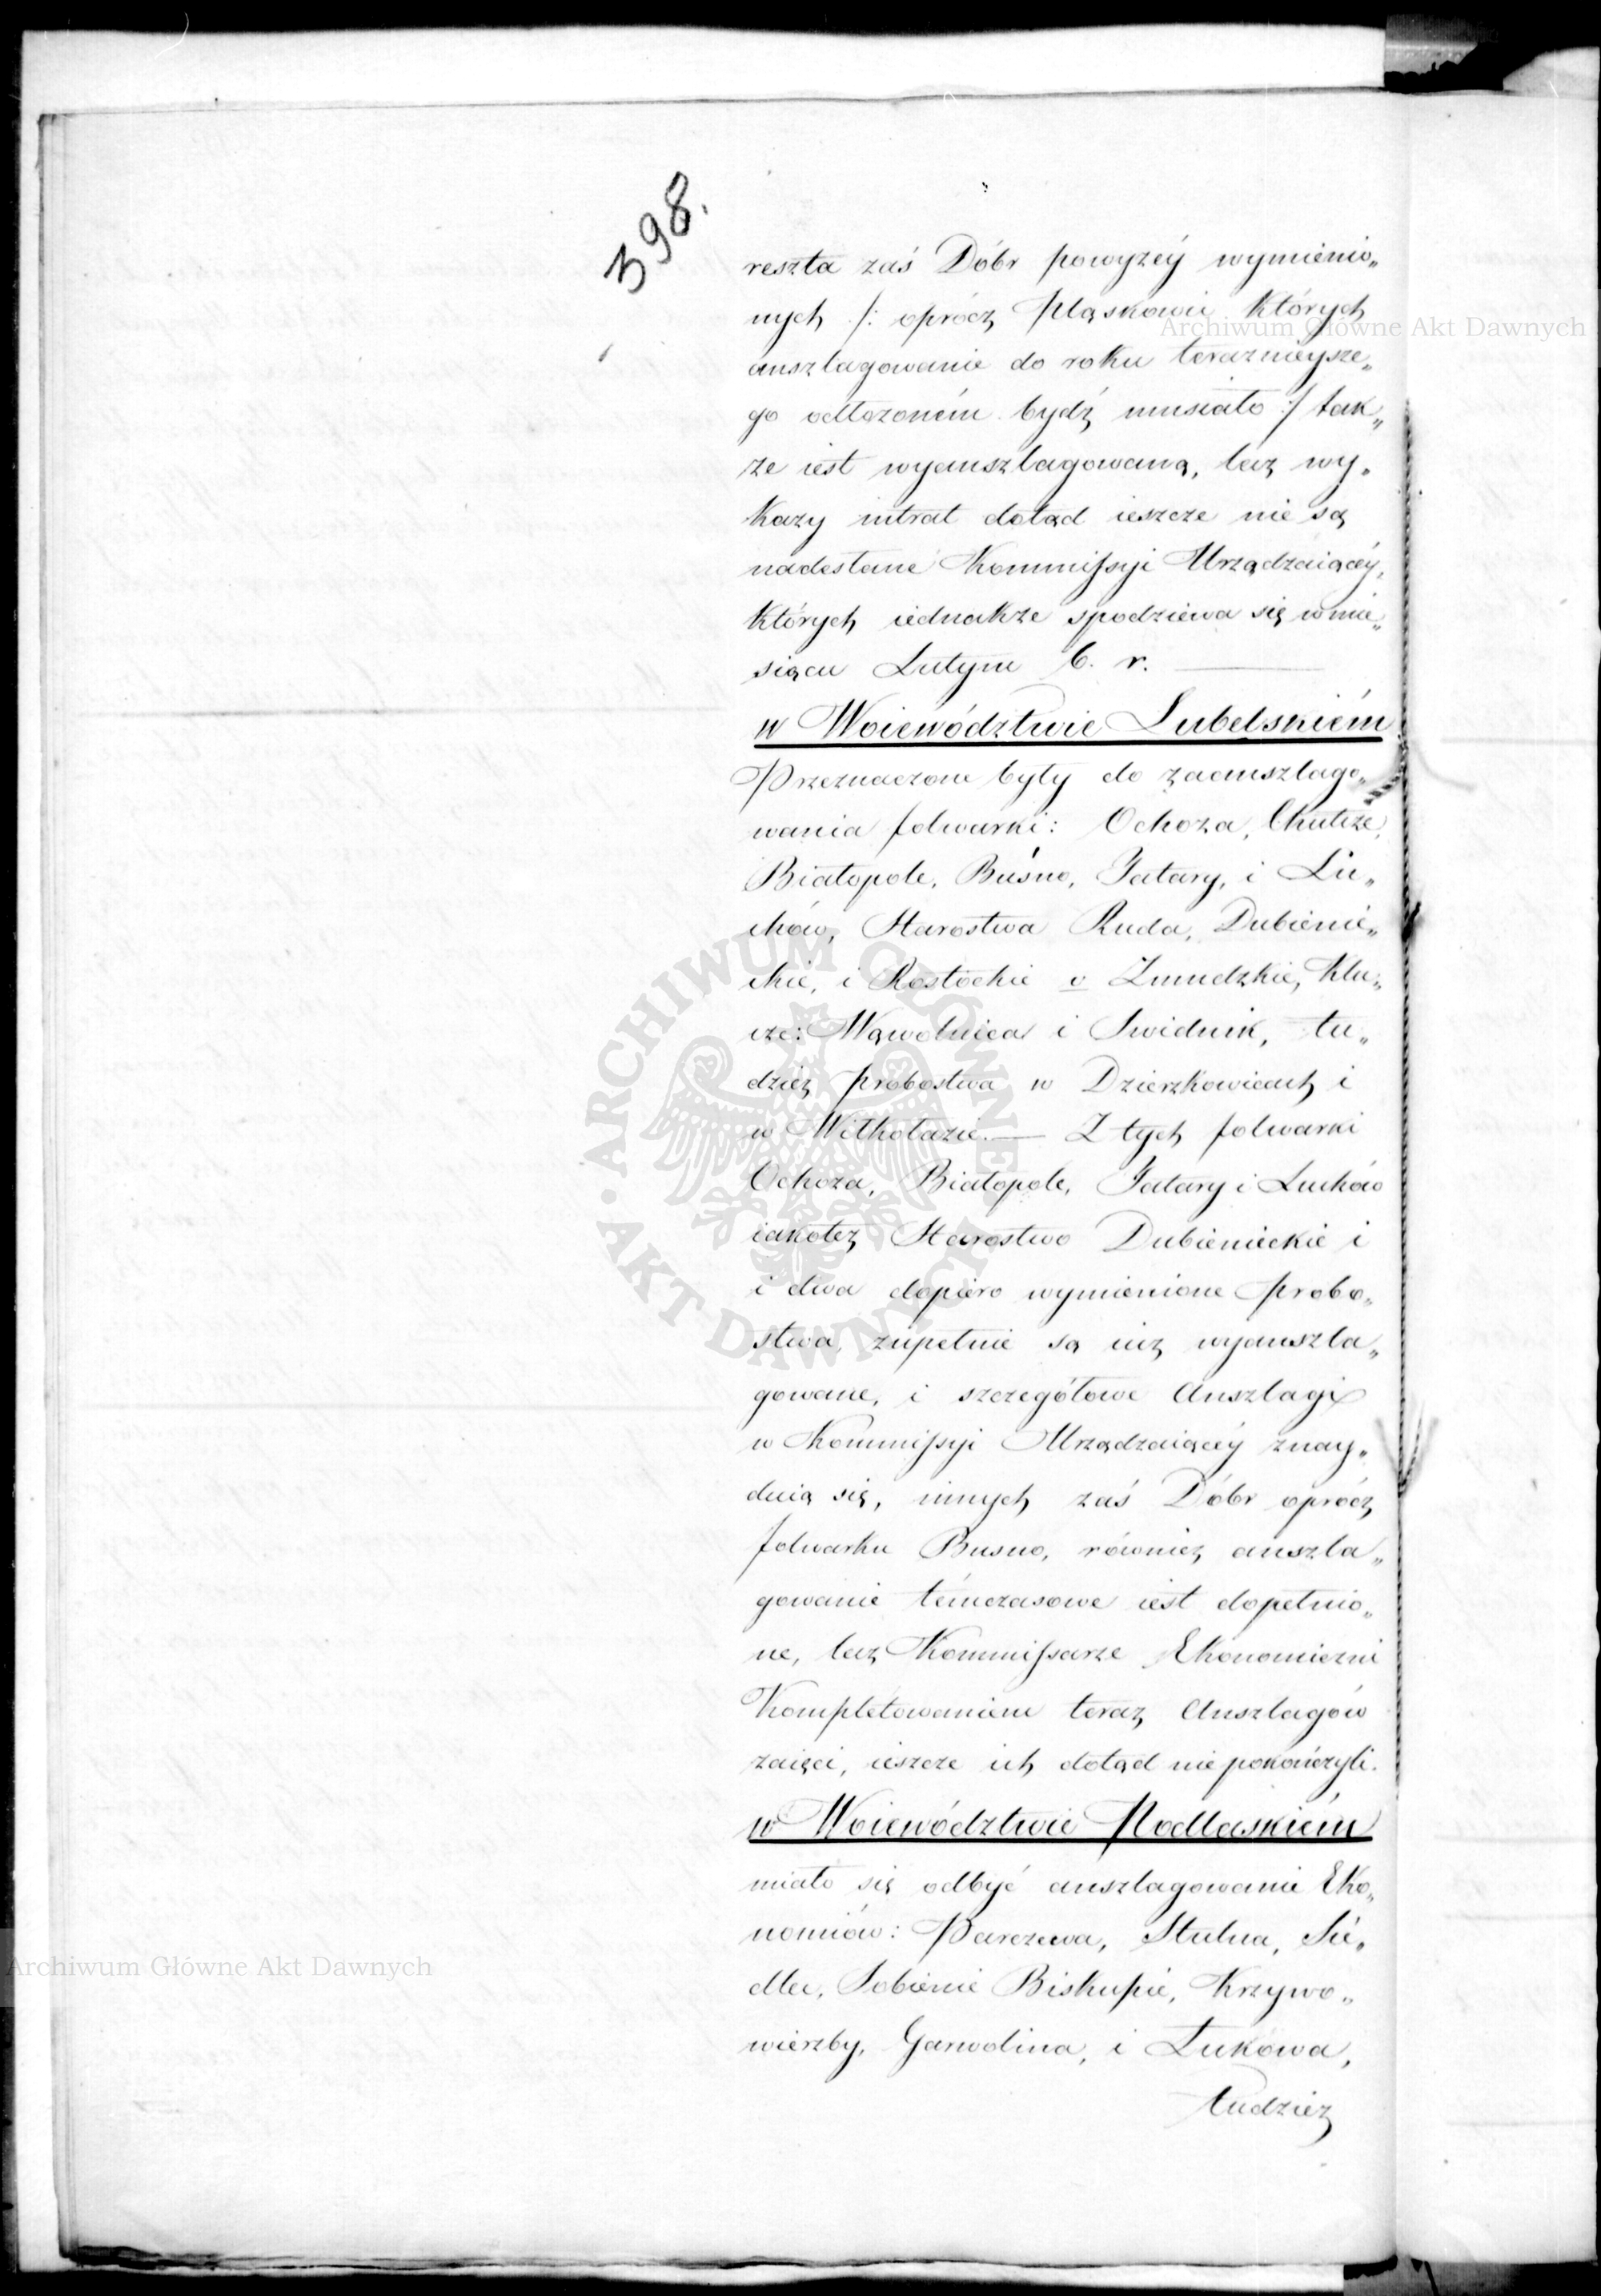 398.
reszta zaś Dóbr powyżéy wymienio„
nych /: oprócz Pląskowic których
anszlagowanie do roku teraznieysze„
go odłożoném bydź musiało :/ tak„
że iest wyanszlagowaną, lecz wy„
kazy intrat dotąd ieszcze nie są
nadesłane Kommissyi Urządzaiącéy,
których iednakże spodziewa się w mie„
siącu Lutym b. r.
w Woiewództwie Lubelskiém
Przeznaczone były do zaanszlago„
wania folwarki: Ochoza, Chutcze,
Białopole, Buśno, Tatary, i Lu„
chów, Starostwa Ruda, Dubienie„
ckie, i Rostockie v Zmudzkie, Klu„
cze: Wąwolnica i Swidnik, tu„
dzież probostwa w Dzierzkowicach i
w Wilkołazie. — Z tych folwarki
Ochoza, Białopole, Tatary i Luchów
iakoteż Starostwo Dubienieckie i
i dwa dopiero wymienione probo„
stwa, zupełnie są iuż wyanszla„
gowane, i szczegółowe Anszlagi
w Kommissyi Urządzaiącéy znay„
duią się, innych zaś Dóbr oprócz
folwarku Busno, również anszla„
gowanie témczasowe iest dopełnio„
ne, lecz Kommissarze Ekonomiczni
Kompletowaniem teraz Anszlagów
zaięci, ieszcze ich dotąd nie pokończyli.
w Woiewództwie Podlaskiém
miało się odbyć anszlagowanie Eko„
nomiów: Parczewa, Stulna, Sie„
dlec, Sobienie Biskupie, Krzywo„
wierzby, Garwolina, i Łukowa,
Tudzież
Archiwum Główne Akt Dawnych
Archiwum Główne Akt Dawnych
ARCHIWUM GŁÓWNE · AKT DAWNYCH ·